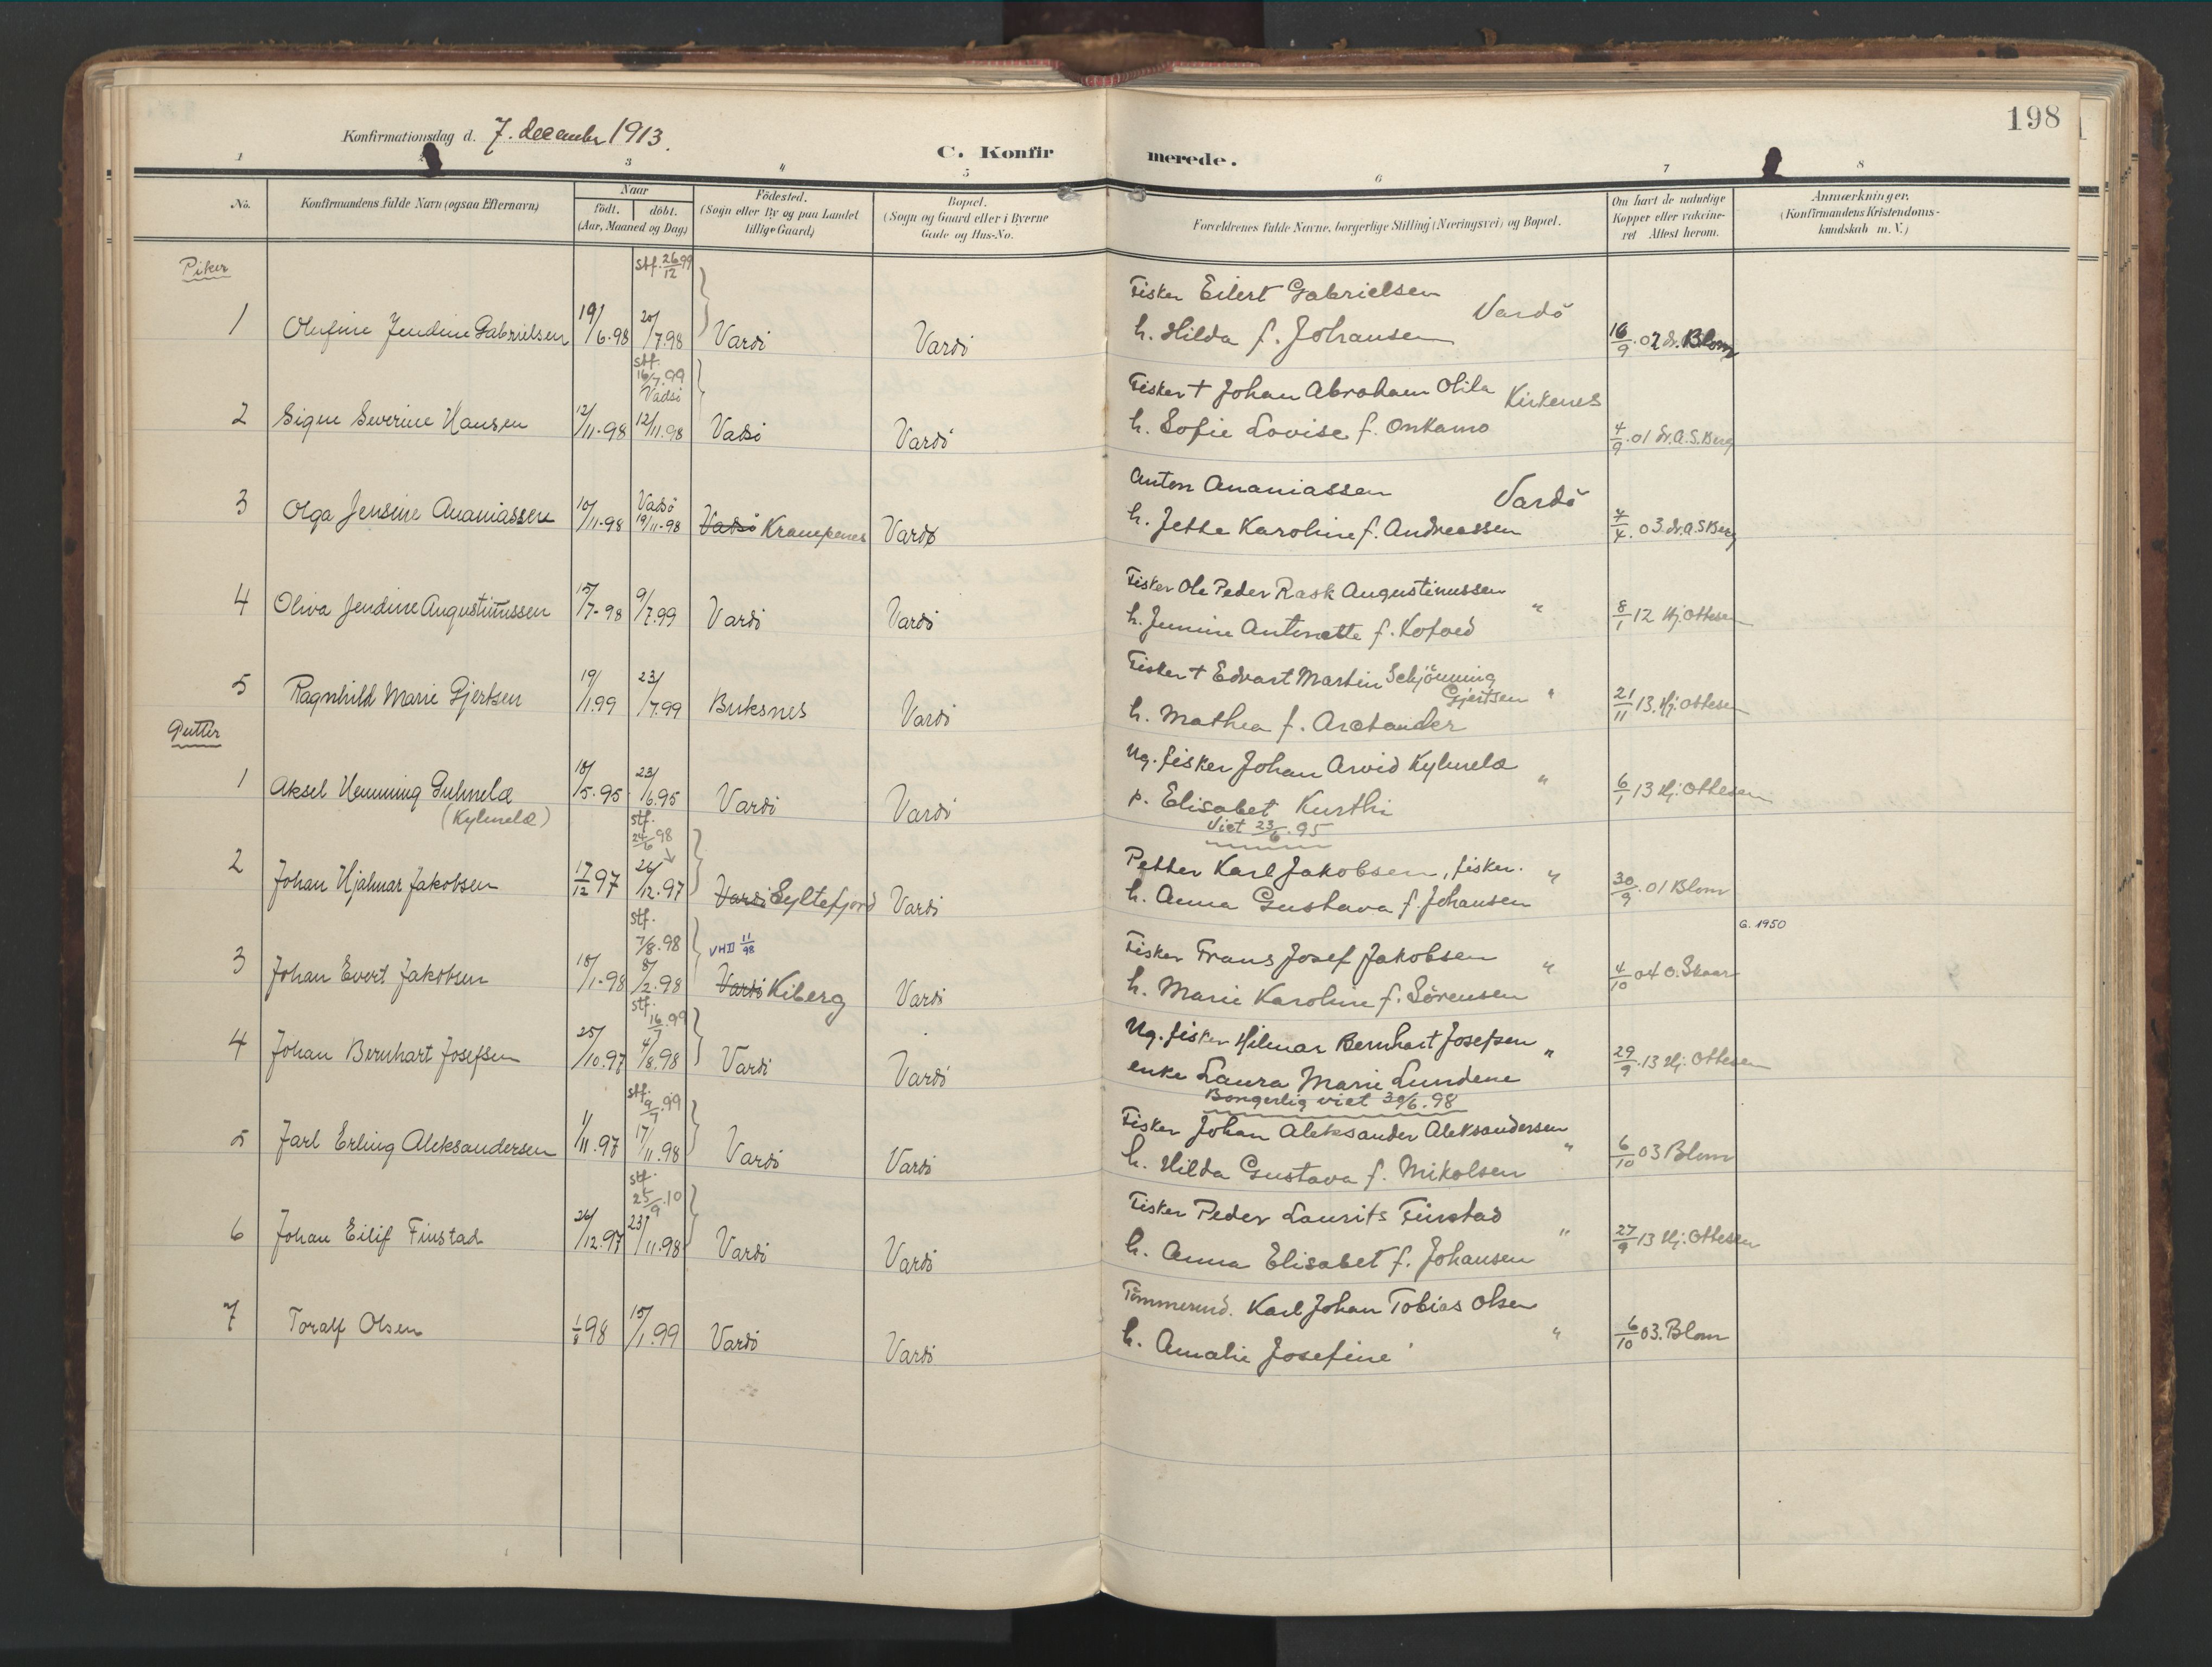 198
Konfirmationsdag d. 7. december 1913.
C. Konfirmerede.
1 2 3 4 5 6 7 8
No. Konfirmandens fulde Navn (ogsaa Efternavn) Naar födt. döbt. (Aar, Maaned og Dag) Födested. (Sogn eller By og paa Landet tillige Gaard) Bopæl. (Sogn og Gaard eller i Byerne Gade og Hus-No. Forældrenes fulde Navne, borgerlige Stilling (Næringsvei) og Bopæl. Om havt de naturlige Kopper eller vakcineret Attest herom. Anmærkninger. (Konfirmandens Kristendomskundskab m. V.)
Piker
stf. 26/12 99
Fisker Eilert Gabrielsen Vardö
1 Olufine Jendine Gabrielsen 19/6.98 20/7.98 Vardö Vardö h. Hilda f. Johansen 16/9.02 dr. Blom
stf. 16/7.99 Vadsö
Fisker + Johan Abraham Olila Kirkenes
2 Signe Severine Hansen 12/11-98 12/11.98 Vadsö Vardö h. Sofie Lovise f. Onkamo 4/9.01 dr. A.S. Berg
Vadsö
Anton Ananiassen Vardö
3 Olga Jensine Ananiassen 10/11-98 19/11-98 Vadsö Krampenes Vardö h. Jette Karoline f. Andreassen 7/4.03. dr. A.S Berg
Fisker Ole Peder Rask Augustinussen "
4 Oliva Jendine Augustinussen 15/7-98 9/7.99 Vardö Vardö h. Jennine Antonette f. Kofoed 8/1 12 Hj. Ottesen
Fisker + Edvart Martin Schjönning Gjertsen "
5 Ragnhild Marie Gjertsen 19/1.99 23/7.99 Buksnes Vardö h. Mathea f. Arctander 21/11 13. Hj. Ottesen
Gutter
Ug. fisker Johan Arvid Kylmelæ "
1 Aksel Hemming Gulmelæ 18/5.95 23/6.95 Vardö Vardö p. Elisabet Kurthi 6/1 13 Hj. Ottesen
(Kylmelæ) Viet 23/6.95
stf. 24/6 98
Petter Karl Jakobsen, fisker. "
2 Johan Hjalmar Jakobsen 17/12 97 26/12.97 Vardö Syltefjord Vardö h. Anna Gustava f. Johansen 30/9.01 Blom
G. 1950
stf. 7/8.98 VHD 11/98
Fisker Frans Josef Jakobsen "
3 Johan Evert Jakobsen 18/1-98 8/2.98 Vardö Kiberg Vardö h. Marie Karoline f. Sörensen 4/10 04 O. Skaar
stf. 16/7.99
Ug. fisker Hilmar Bernhart Josefsen "
4 Johan Bernhart Josefsen 25/10.97 4/8.98 Vardö Vardö enke Laura Marie Lundene 29/9.13 Hj. Ottesen
Borgerlig viet 30/6.98
stf. 9/7.99
Fisker Johan Aleksander Aleksandersen "
5 Jarl Erling Aleksandersen 1/11.97 17/11.98 Vardö Vardö h. Hilda Gustava f. Mikalsen 6/10 03 Blom
stf. 25/9.10
Fisker Peder Laurits Finstad "
6 Johan Eilif Finstad 26/12.97 23/11.98 Vardö Vardö h. Anna Elisabet f. Johansen 27/9 13 Hj. Ottesen
Tömmermd. Karl Johan Tobias Olsen "
7 Toralf Olsen 1/8 98 15/1.99 Vardö Vardö h. Amalie Josefine 6/10 03. Blom